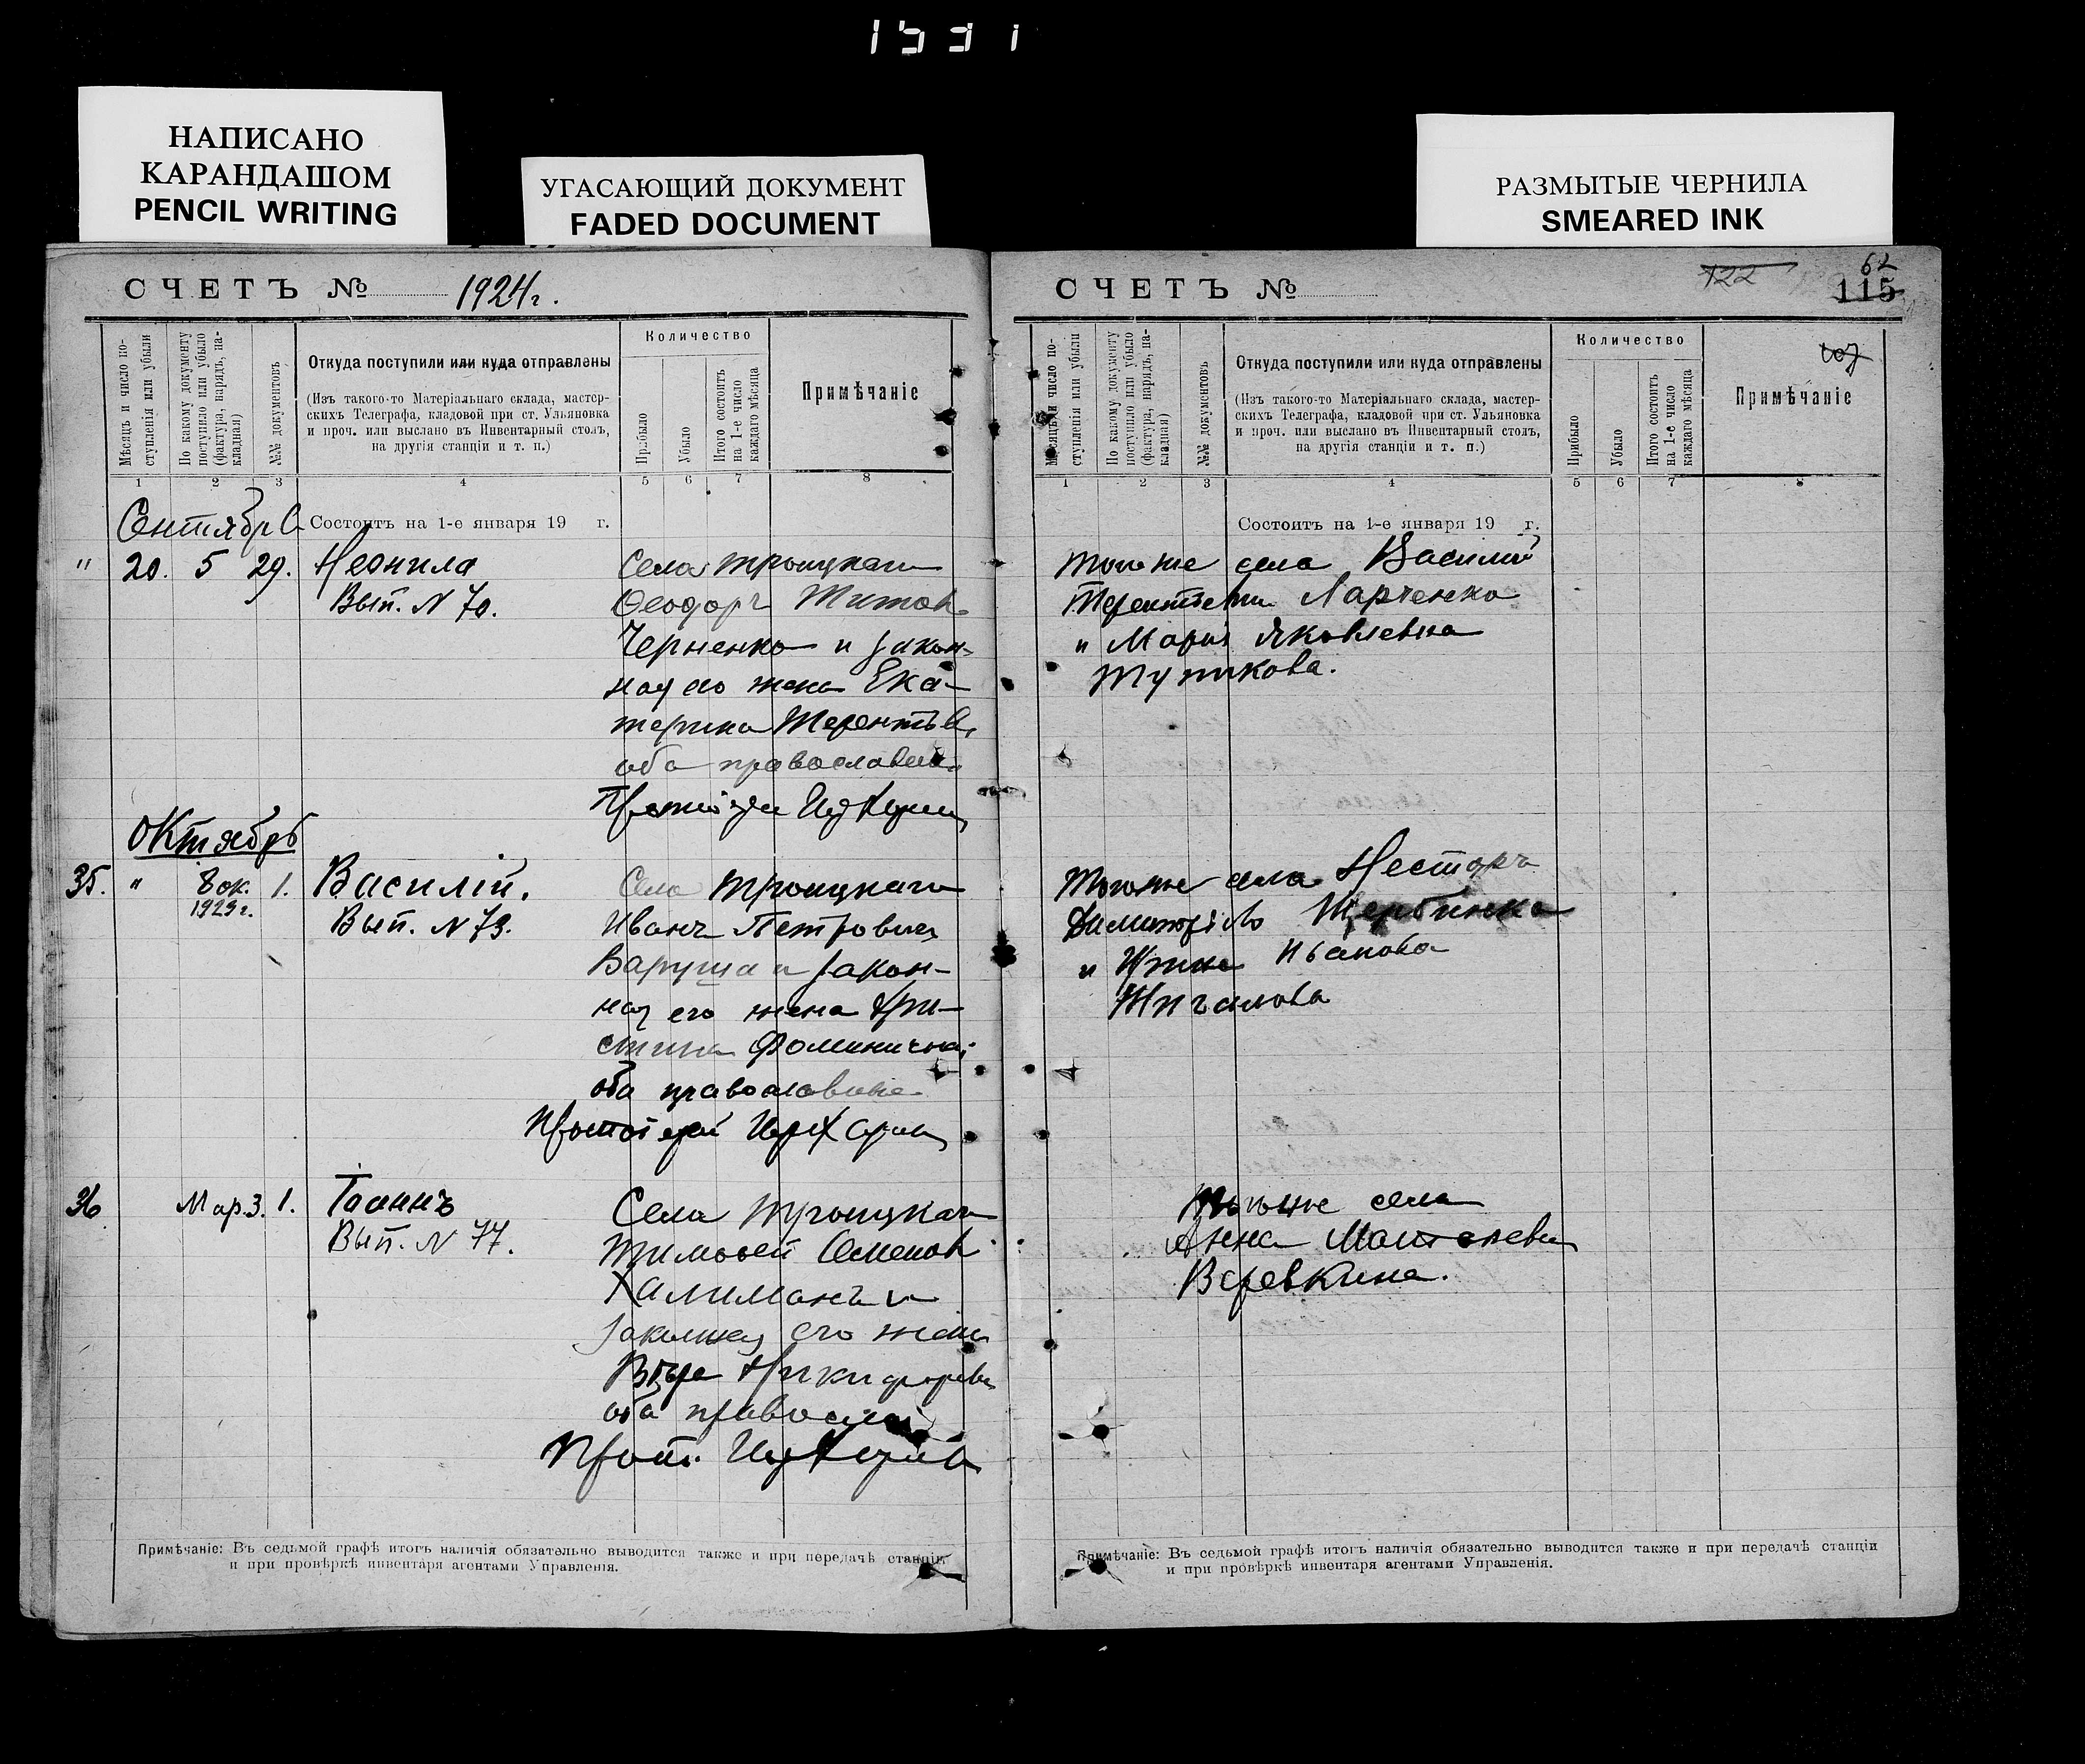 1531
НАПИСАНО
КАРАНДАШОМ
PENCIL WRITING
УГАСАЮЩИЙ ДОКУМЕНТ
FADED DOCUMENT
РАЗМЫТЫЕ ЧЕРНИЛА
SMEARED INK
СЧЕТЪ № 1924г.
Мѣсяцъ и число по-
ступленія или убыли
По какому документу
поступило или убыло
(фактура, нарядъ, на-
кладная)
№№ документовъ
Откуда поступили или куда отправлены
(Изъ такого-то Матеріальнаго склада, мастер-
скихъ Телеграфа, кладовой при ст. Ульяновка
и проч. или выслано въ Инвентарный столъ,
на другія станціи и т. п.)
Количество
Прибыло
Убыло
Итого состоитъ
на 1-е число
каждаго мѣсяца
Примѣчаніе
1 2 3 4 5 6 7 8
Сентябрь
Состоитъ на 1-е января 19 г.
" 20. 5 29. Неонила
Вып. N 70.
Села Троицкаго
Ѳеодоръ Титов
Черненко и закон-
ная его жена Ека-
терина Терентьев
оба православн.
Октябрь
35. " 8 ок. 1. Василій.
1923 г.
Вып. N 73.
Села Троицкаго
Иванъ Петрович
Варуша и закон-
ная его жена Хри-
стина Фоминична
оба православные
Протоіерей
36 Мар. 3. 1. Іоаннъ
Вып. N 77.
Села Троицкаго
Тимоѳей Семенов
Халиманъ и
законная его жена
Вѣра Никифоровн
оба православ
Прот.
Примѣчаніе: Въ седьмой графѣ итогъ наличія обязательно выводится также и при передачѣ станціи
и при провѣркѣ инвентаря агентами Управленія.
СЧЕТЪ №
122
62
115
107
Мѣсяцъ и число по-
ступленія или убыли
По какому документу
поступило или убыло
(фактура, нарядъ, на-
кладная)
№№ документовъ
Откуда поступили или куда отправлены
(Изъ такого-то Матеріальнаго склада, мастер-
скихъ Телеграфа, кладовой при ст. Ульяновка
и проч. или выслано въ Инвентарный столъ,
на другія станціи и т. п.)
Количество
Прибыло
Убыло
Итого состоитъ
на 1-е число
каждаго мѣсяца
Примѣчаніе
1 2 3 4 5 6 7 8
Состоитъ на 1-е января 19 г.
Того же села Василий
Терентіевич Ларченко
и Мария Яковлевна
Тупикова.
Того же села Несторъ
Димитріев Щербинка
и Иванова
Жигалова
Того же села
Анна
Веревкина.
Примѣчаніе: Въ седьмой графѣ итогъ наличія обязательно выводится также и при передачѣ станціи
и при провѣркѣ инвентаря агентами Управленія.